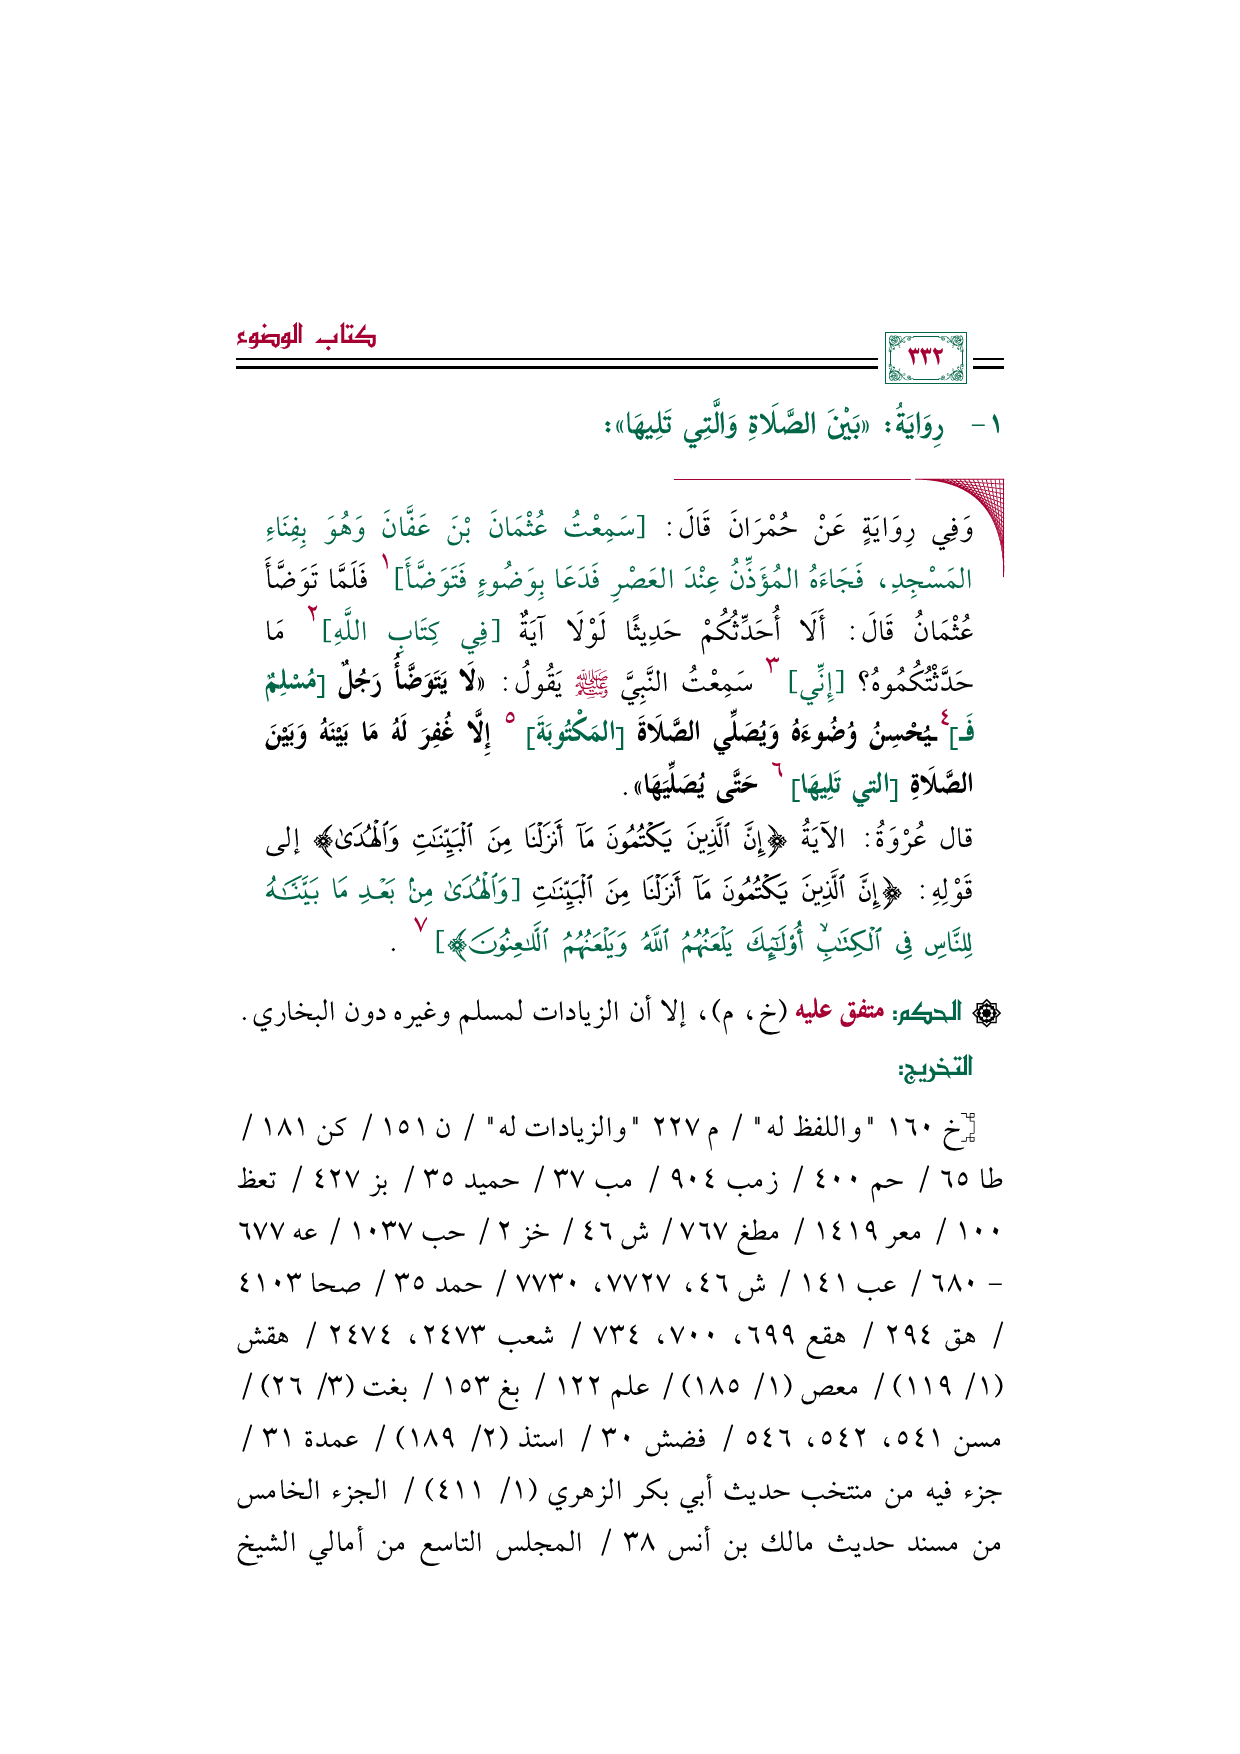 كتاب الوضوء
٣٣٢
١- رِوَايَةُ: «بَيْنَ الصَّلَاةِ وَالَّتِي تَلِيهَا»:
وَفِي رِوَايَةٍ عَنْ حُمْرَانَ قَالَ: [سَمِعْتُ عُثْمَانَ بْنَ عَفَّانَ وَهُوَ بِفِنَاءِ
المَسْجِدِ، فَجَاءَهُ المُؤَذِّنُ عِنْدَ العَصْرِ فَدَعَا بِوَضُوءٍ فَتَوَضَّأَ]١ فَلَمَّا تَوَضَّأَ
عُثْمَانُ قَالَ: أَلَا أُحَدِّثُكُمْ حَدِيثًا لَوْلَا آيَةٌ [فِي كِتَابِ اللَّهِ]٢ مَا
حَدَّثْتُكُمُوهُ؟ [إِنِّي]٣ سَمِعْتُ النَّبِيَّ ﷺ يَقُولُ: «لَا يَتَوَضَّأُ رَجُلٌ [مُسْلِمٌ
فَـ]٤ـيُحْسِنُ وُضُوءَهُ وَيُصَلِّي الصَّلَاةَ [المَكْتُوبَةَ]٥ إِلَّا غُفِرَ لَهُ مَا بَيْنَهُ وَبَيْنَ
الصَّلَاةِ [التي تَلِيهَا]٦ حَتَّى يُصَلِّيَهَا».
قال عُرْوَةُ: الآيَةُ ﴿إِنَّ ٱلَّذِينَ يَكْتُمُونَ مَآ أَنزَلْنَا مِنَ ٱلْبَيِّنَٰتِ وَٱلْهُدَىٰ﴾ إلى
قَوْلِهِ: ﴿إِنَّ ٱلَّذِينَ يَكْتُمُونَ مَآ أَنزَلْنَا مِنَ ٱلْبَيِّنَٰتِ [وَٱلْهُدَىٰ مِنۢ بَعْدِ مَا بَيَّنَّٰهُ
لِلنَّاسِ فِى ٱلْكِتَٰبِ ۙ أُو۟لَٰٓئِكَ يَلْعَنُهُمُ ٱللَّهُ وَيَلْعَنُهُمُ ٱللَّٰعِنُونَ﴾]٧.
الحكم: متفق عليه (خ، م)، إلا أن الزيادات لمسلم وغيره دون البخاري.
التخريج:
[خ ١٦٠ "واللفظ له" / م ٢٢٧ "والزيادات له" / ن ١٥١ / كن ١٨١ /
طا ٦٥ / حم ٤٠٠ / زمب ٩٠٤ / مب ٣٧ / حميد ٣٥ / بز ٤٢٧ / تعظ
١٠٠ / معر ١٤١٩ / مطغ ٧٦٧ / ش ٤٦ / خز ٢ / حب ١٠٣٧ / عه ٦٧٧
- ٦٨٠ / عب ١٤١ / ش ٤٦، ٧٧٢٧، ٧٧٣٠ / حمد ٣٥ / صحا ٤١٠٣
/ هق ٢٩٤ / هقع ٦٩٩، ٧٠٠، ٧٣٤ / شعب ٢٤٧٣، ٢٤٧٤ / هقش
(١/ ١١٩) / معص (١/ ١٨٥) / علم ١٢٢ / بغ ١٥٣ / بغت (٣/ ٢٦) /
مسن ٥٤١، ٥٤٢، ٥٤٦ / فضش ٣٠ / استذ (٢/ ١٨٩) / عمدة ٣١ /
جزء فيه من منتخب حديث أبي بكر الزهري (١/ ٤١١) / الجزء الخامس
من مسند حديث مالك بن أنس ٣٨ / المجلس التاسع من أمالي الشيخ